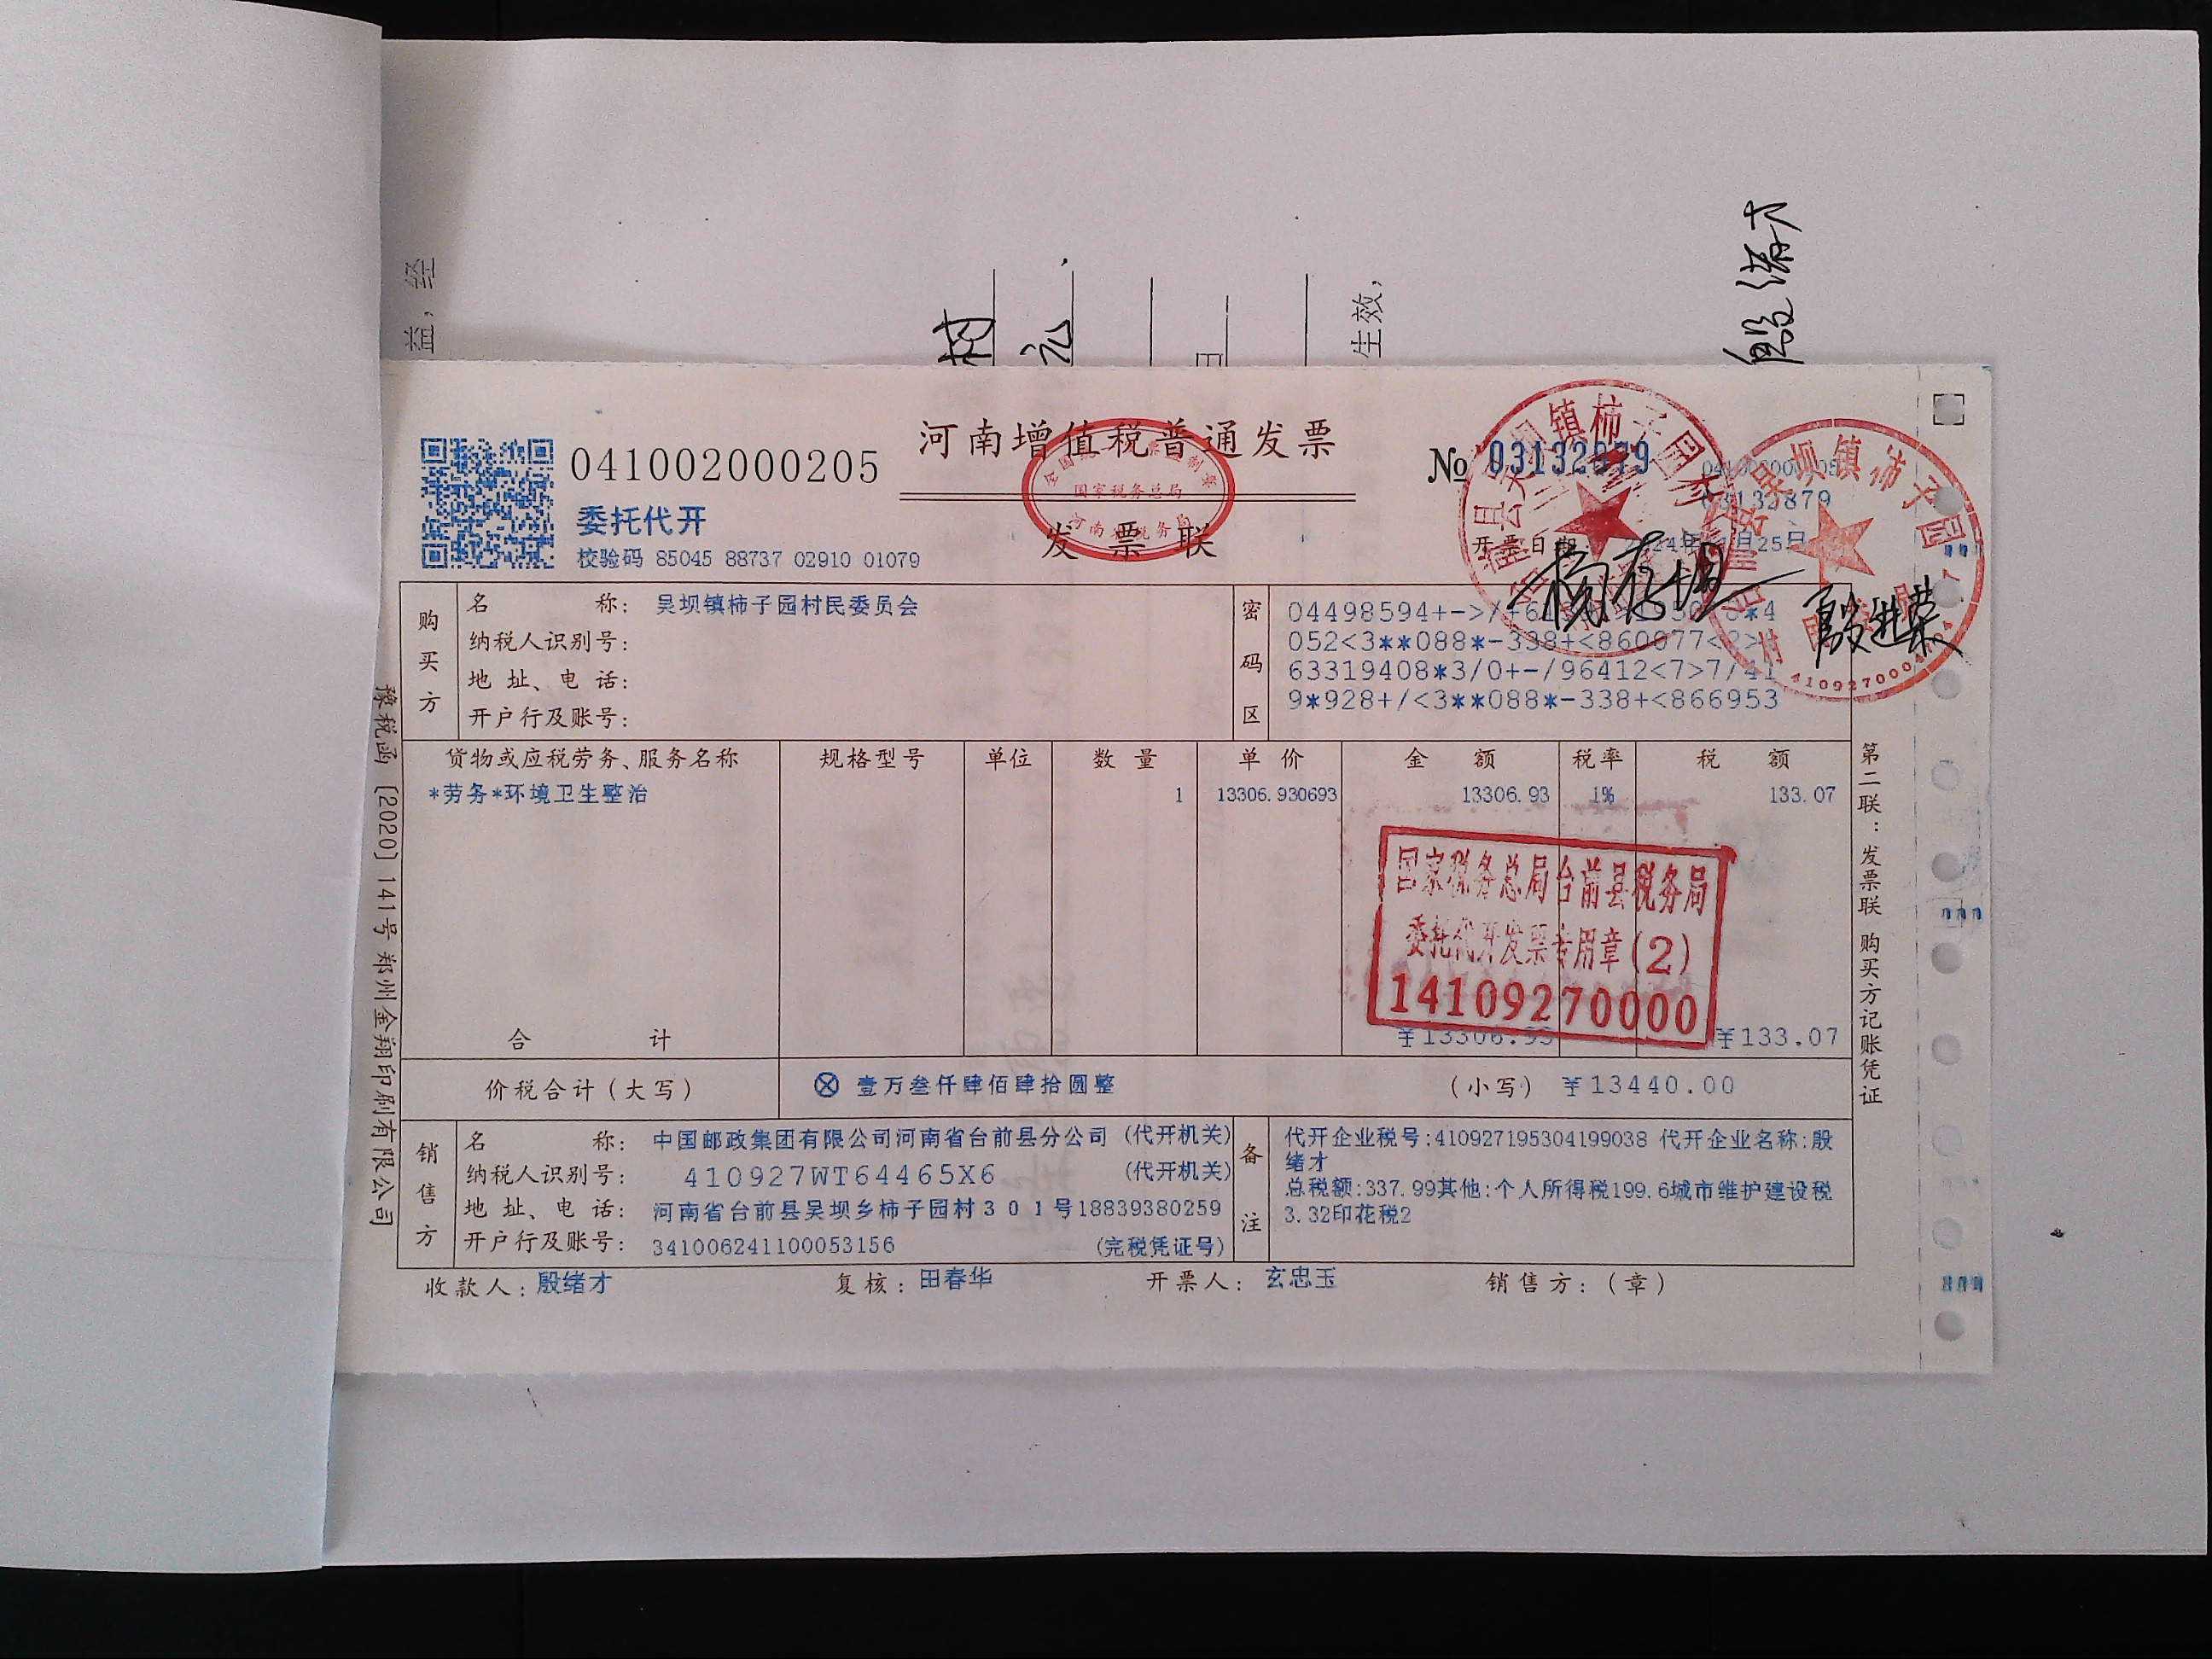 益，经
村
元
生效，
河南增值税普通发票
041002000205
№ 03132879
03132879
委托代开
国家税务总局
发票联
校验码 85045 88737 02910 01079
开票日期
月25日
购买方
名称：吴坝镇柿子园村民委员会
纳税人识别号：
地址、电话：
开户行及账号：
密码区
04498594+->/
052<3**088*-338+<860077<
63319408*3/0+-/96412<7>7/41
9*928+/<3**088*-338+<866953
货物或应税劳务、服务名称 规格型号 单位 数量 单价 金额 税率 税额
*劳务*环境卫生整治 1 13306.930693 13306.93 1% 133.07
国家税务总局台前县税务局
委托代开发票专用章(2)
14109270000
合计 ¥13306.93 ¥133.07
价税合计（大写） ⊗ 壹万叁仟肆佰肆拾圆整 （小写）¥13440.00
销售方
名称：中国邮政集团有限公司河南省台前县分公司（代开机关）
纳税人识别号：410927WT64465X6（代开机关）
地址、电话：河南省台前县吴坝乡柿子园村301号18839380259
开户行及账号：341006241100053156（完税凭证号）
备注
代开企业税号:410927195304199038 代开企业名称:殷
绪才
总税额:337.99其他:个人所得税199.6城市维护建设税
3.32印花税2
收款人：殷绪才 复核：田春华 开票人：玄忠玉 销售方：（章）
第二联：发票联 购买方记账凭证
豫税函［2020］141号郑州金翔印刷有限公司
镇柿子园
吴坝镇柿子园
殷进荣